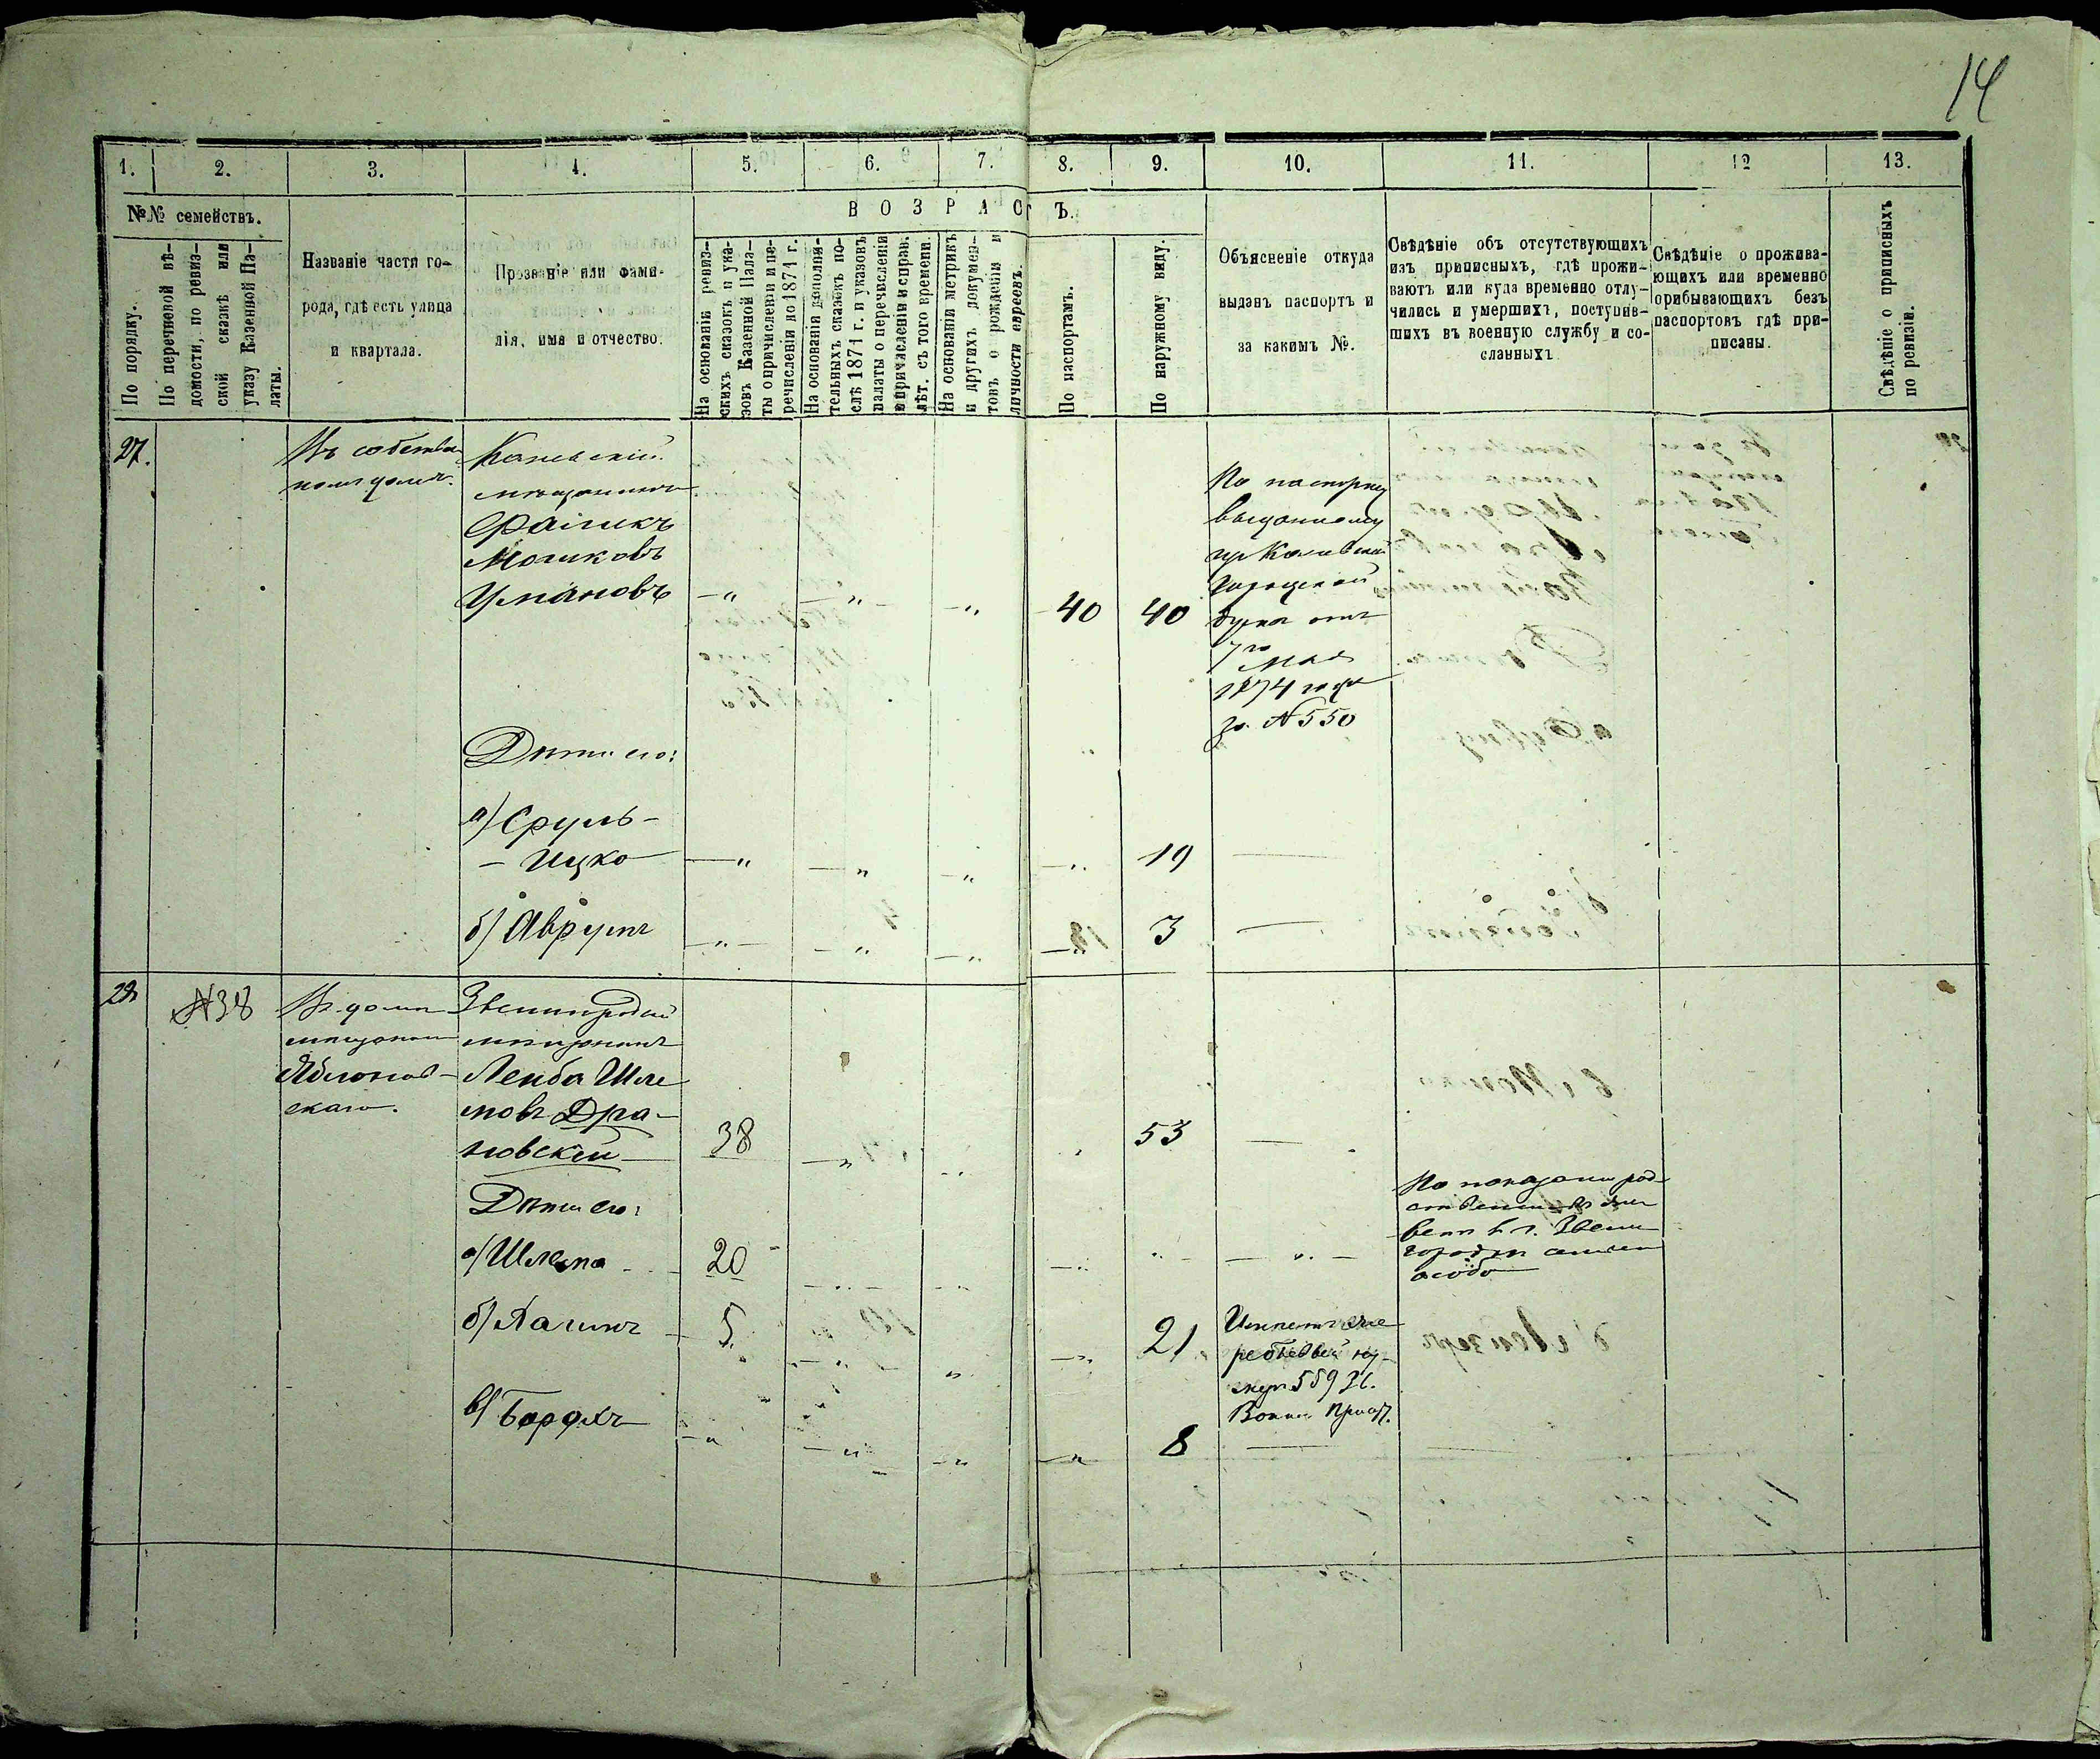 14
1. 2. 3. 4. 5. 6. 7. 8. 9. 10. 11. 12 13.
№№ семействъ.
По порядку.
По перечневой вѣ-
домости, по ревиз-
ской сказкѣ или
указу Казенной Па-
латы.
Названіе части го-
рода, гдѣ есть улица
и квартала.
Прозваніе или фами-
лія, имя и отчество.
ВОЗРАСТЪ.
На основаніи ревиз-
скихъ сказокъ и ука-
зовъ Казенной Пала-
ты о причисленіи и пе-
речисленіи до 1871 г.
На основаніи дополни-
тельныхъ сказокъ по-
слѣ 1871 г. и указовъ
палаты о перечисленіи
и причисленіи и справ.
лѣт. съ того времени.
На основаніи метрикъ
и другихъ докумен-
товъ о рожденіи и
личности евреевъ.
По паспортамъ.
По наружному виду.
Объясненіе откуда
выданъ паспортъ и
за какимъ №.
Свѣдѣніе объ отсутствующихъ
изъ приписныхъ, гдѣ прожи-
ваютъ или куда временно отлу-
чились и умершихъ, поступив-
шихъ въ военную службу и со-
сланныхъ
Свѣдѣніе о прожива-
ющихъ или временно
прибывающихъ безъ
паспортовъ гдѣ при-
писаны.
Свѣдѣніе о приписныхъ
по ревизіи.
27.
Въ собствен
номъ домѣ.
Каневскій
мѣщанинъ
Фаликъ
Мошковъ
Умановъ
40 40
По паспорту
выданному
изъ Каневской
Городской
Думы отъ
7го Мая
1874 года
за №550
Дѣти его:
а) Сруль-
- Ицко
19
б) Аврумъ
3
28
№38
Въ домѣ
мѣщанина
Яблонов-
скаго.
Звенигородскій
мѣщанинъ
Лейба Шле
мовъ Дра-
новскій
38
53
Дѣти его:
а) Шлема
20
По показанію род-
ственниковъ жи
ветъ въ г. Звени
городкѣ
особо
б)
5
21
Имѣетъ
559
в) Борохъ
8